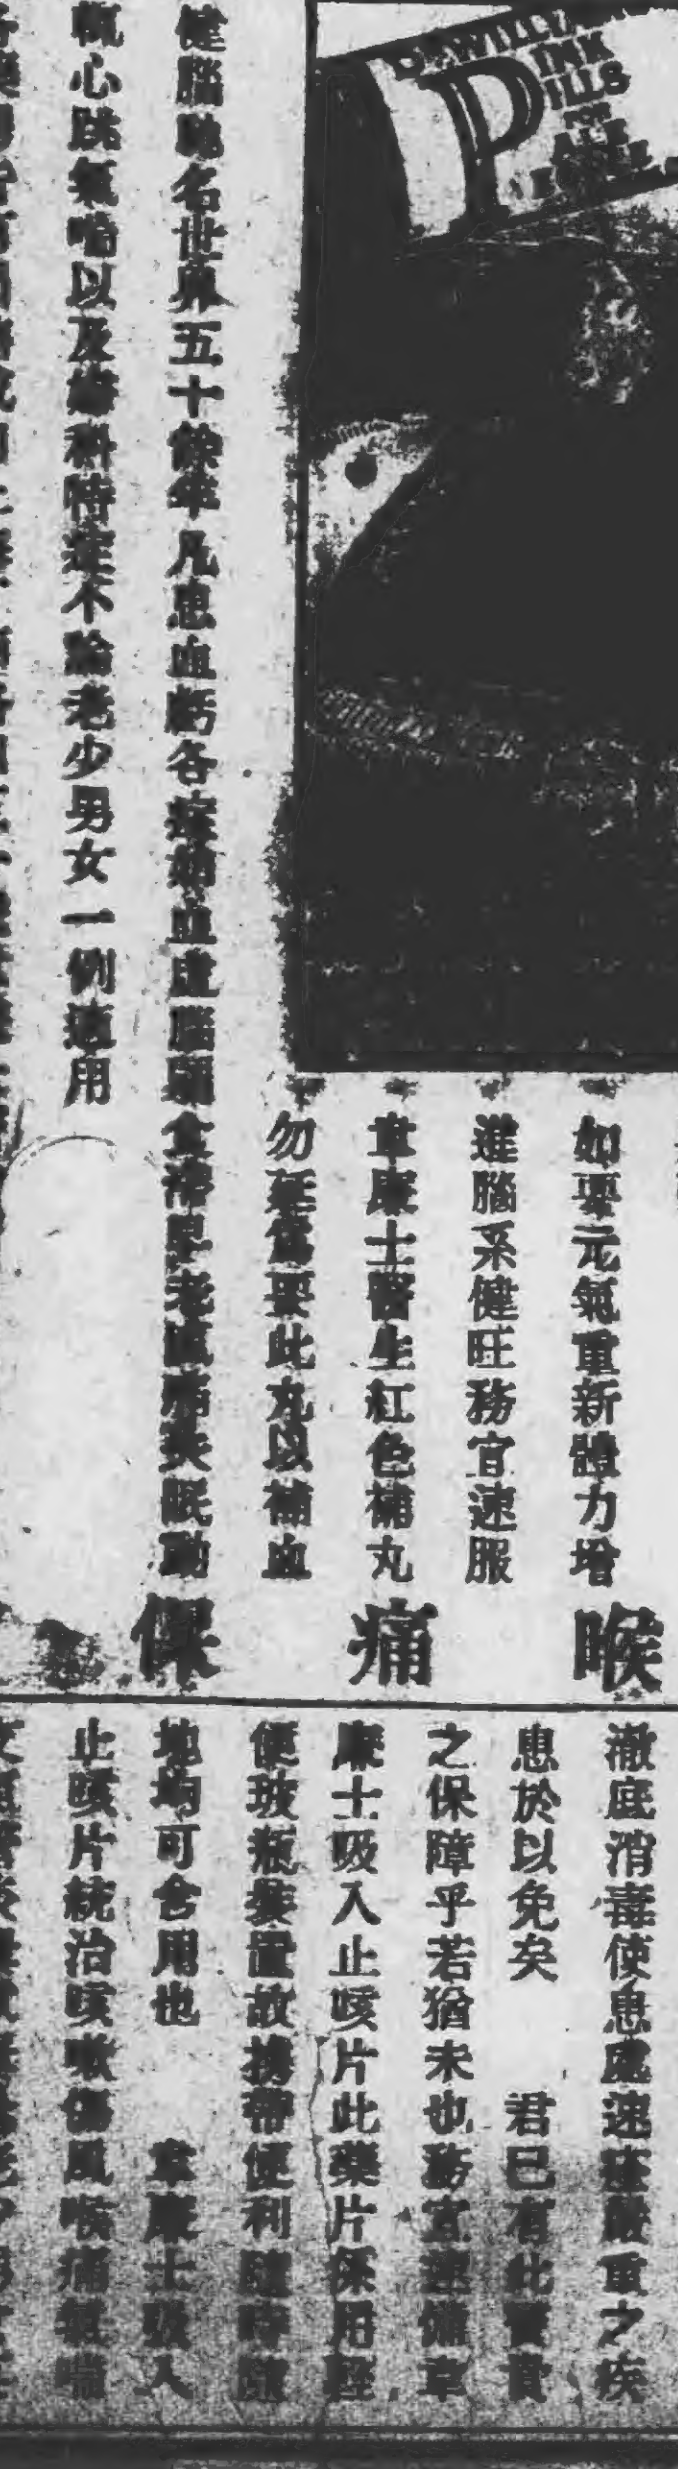 PINK
PILLS
FOR
PALE
如要元氣重新體力增
進腦系健旺務宜速服
韋廉士醫生紅色補丸
勿延當要此丸以補血
健腦馳名世界五十餘年凡患血虧各症納血虛腦弱食滯早老陽痿失眠
心跳氣喘以及婦科特症不論老少男女一例適用
喉 痛
澈底消毒使患處速痊嚴重之疾
患於以免矣 君已有此寶貴
之保障乎若猶未也務宜速備韋
廉士吸入止咳片此藥片係用輕
便玻瓶裝置故携帶便利隨時隨
地均可含用也 韋廉士吸入
止咳片統治咳嗽傷風喉痛氣喘